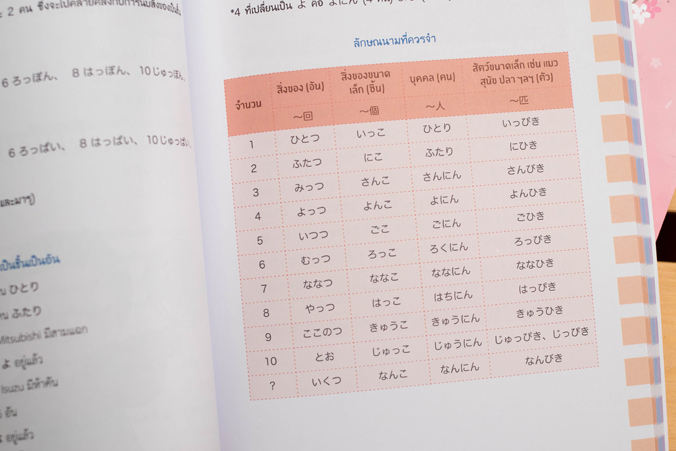 2 คน ซึ่งจะไปคล้ายคลึงกับการนับสิ่งของเป็นชิ้น
6 ろっぽん、 8 はっぽん、 10 じゅっぽん、
6 ろっぱい、 8 はっぱい、 10 じゅっぱい、
และมาๆ)
เป็นชิ้นเป็นอัน
ひとり
ふたり
Mitsubishi มีสามแฉก
よ อยู่แล้ว
Isuzu มีห้าคัน
อัน
อยู่แล้ว
*4 ที่เปลี่ยนเป็น よ คือ よにん (4 คน)
ลักษณนามที่ควรจำ
จำนวน สิ่งของ (อัน) สิ่งของขนาดเล็ก (ชิ้น) บุคคล (คน) สัตว์ขนาดเล็ก เช่น แมว สุนัข ปลา ฯลฯ (ตัว)
～回 ～個 ～人 ～匹
1 ひとつ いっこ ひとり いっぴき
2 ふたつ にこ ふたり にひき
3 みっつ さんこ さんにん さんびき
4 よっつ よんこ よにん よんひき
5 いつつ ごこ ごにん ごひき
6 むっつ ろっこ ろくにん ろっぴき
7 ななつ ななこ ななにん ななひき
8 やっつ はっこ はちにん はっぴき
9 ここのつ きゅうこ きゅうにん きゅうひき
10 とお じゅっこ じゅうにん じゅっぴき、じっぴき
? いくつ なんこ なんにん なんびき